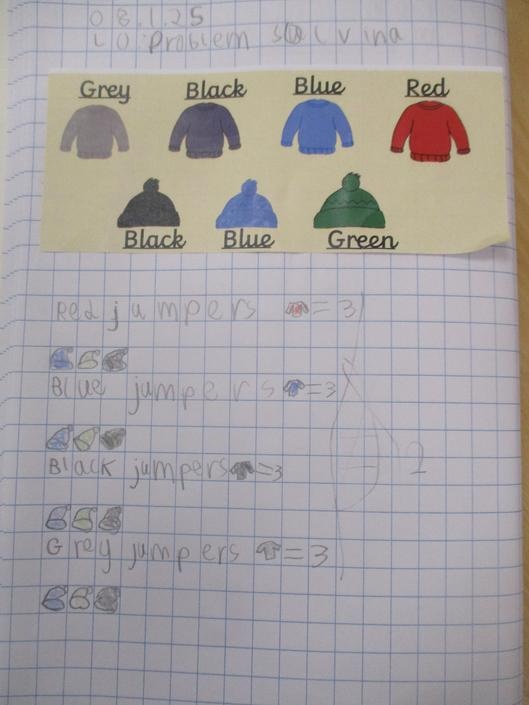 08.1.25
LO: Problem solvina
Grey Black Blue Red
Black Blue Green
Red jumpers = 3
Blue jumpers = 3
Black jumpers = 3
2
Grey jumpers = 3